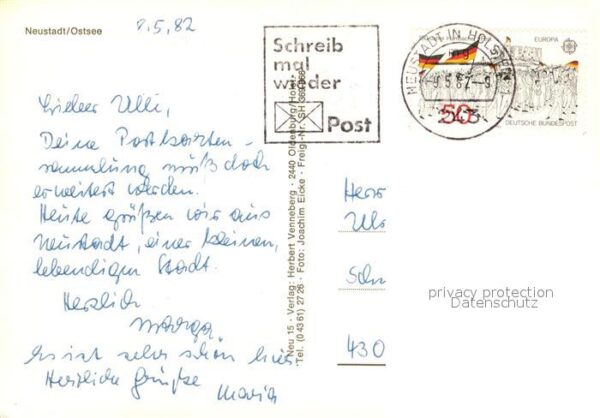 Neustadt/Ostsee
8.5.82
Schreib
mal
wieder
Post
NEUSTADT IN HOLSTEIN 1
9.5.82-9
EUROPA
50
DEUTSCHE BUNDESPOST
Lieber Ulli,
Deine Postkarten-
sammlung muß doch
erweitert werden.
Heute grüßen wir aus
Neustadt, einer kleinen,
lebendigen Stadt.
Herzlich
Es ist sehr schön hier.
Herzliche Grüße
Maria
Neu 15 · Verlag: Herbert Venneberg · 2440 Oldenburg/Holst.
Tel. (0 43 61) 27 26 · Foto: Joachim Eicke · Freig.-Nr. SH
Herr
Ulr
Sch
430
privacy protection
Datenschutz